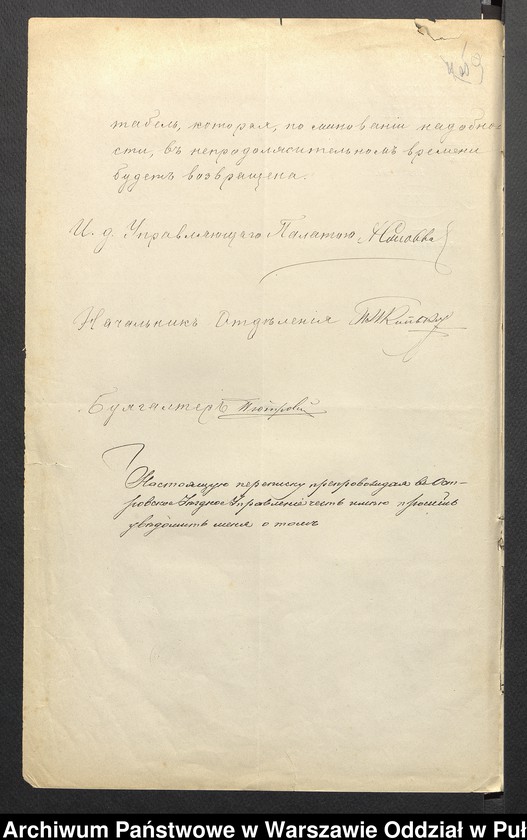 табель, которая, по минованіи надобно-
сти, въ непродолжительномъ времени
будетъ возвращена.
И. д. Управляющаго Палатою
Начальникъ Отдѣленія
Бухгалтеръ
Настоящую переписку препровождая въ Ост-
ровское Уѣздное Управленіе честь имѣю просить
увѣдомить меня о томъ
Archiwum Państwowe w Warszawie Oddział w Puł